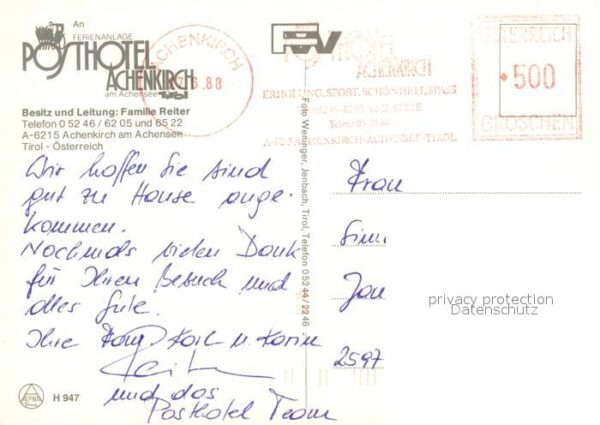 An
FERIENANLAGE
POSTHOTEL
ACHENKIRCH
am Achensee Tirol
Besitz und Leitung: Familie Reiter
Telefon 0 52 46 / 62 05 und 65 22
A-6215 Achenkirch am Achensen
Tirol - Österreich
ACHENKIRCH
6.88
POSTHOTEL
ACHENKIRCH
ERHOLUNG, SPORT, SCHÖNHEIT, SPASS
A-6215 ACHENKIRCH-ACHENSEE-TIROL
ÖSTERREICH
500
GROSCHEN
Wir hoffen Sie sind
gut zu Hause ange-
kommen.
Nochmals vielen Dank
für Ihren Besuch und
alles Gute.
Ihre Fam. Karl u. Karin
und das
Posthotel Team
Foto Weninger, Jenbach, Tirol, Telefon 0 52 44 / 22 46
Frau
2597
privacy protection
Datenschutz
H 947